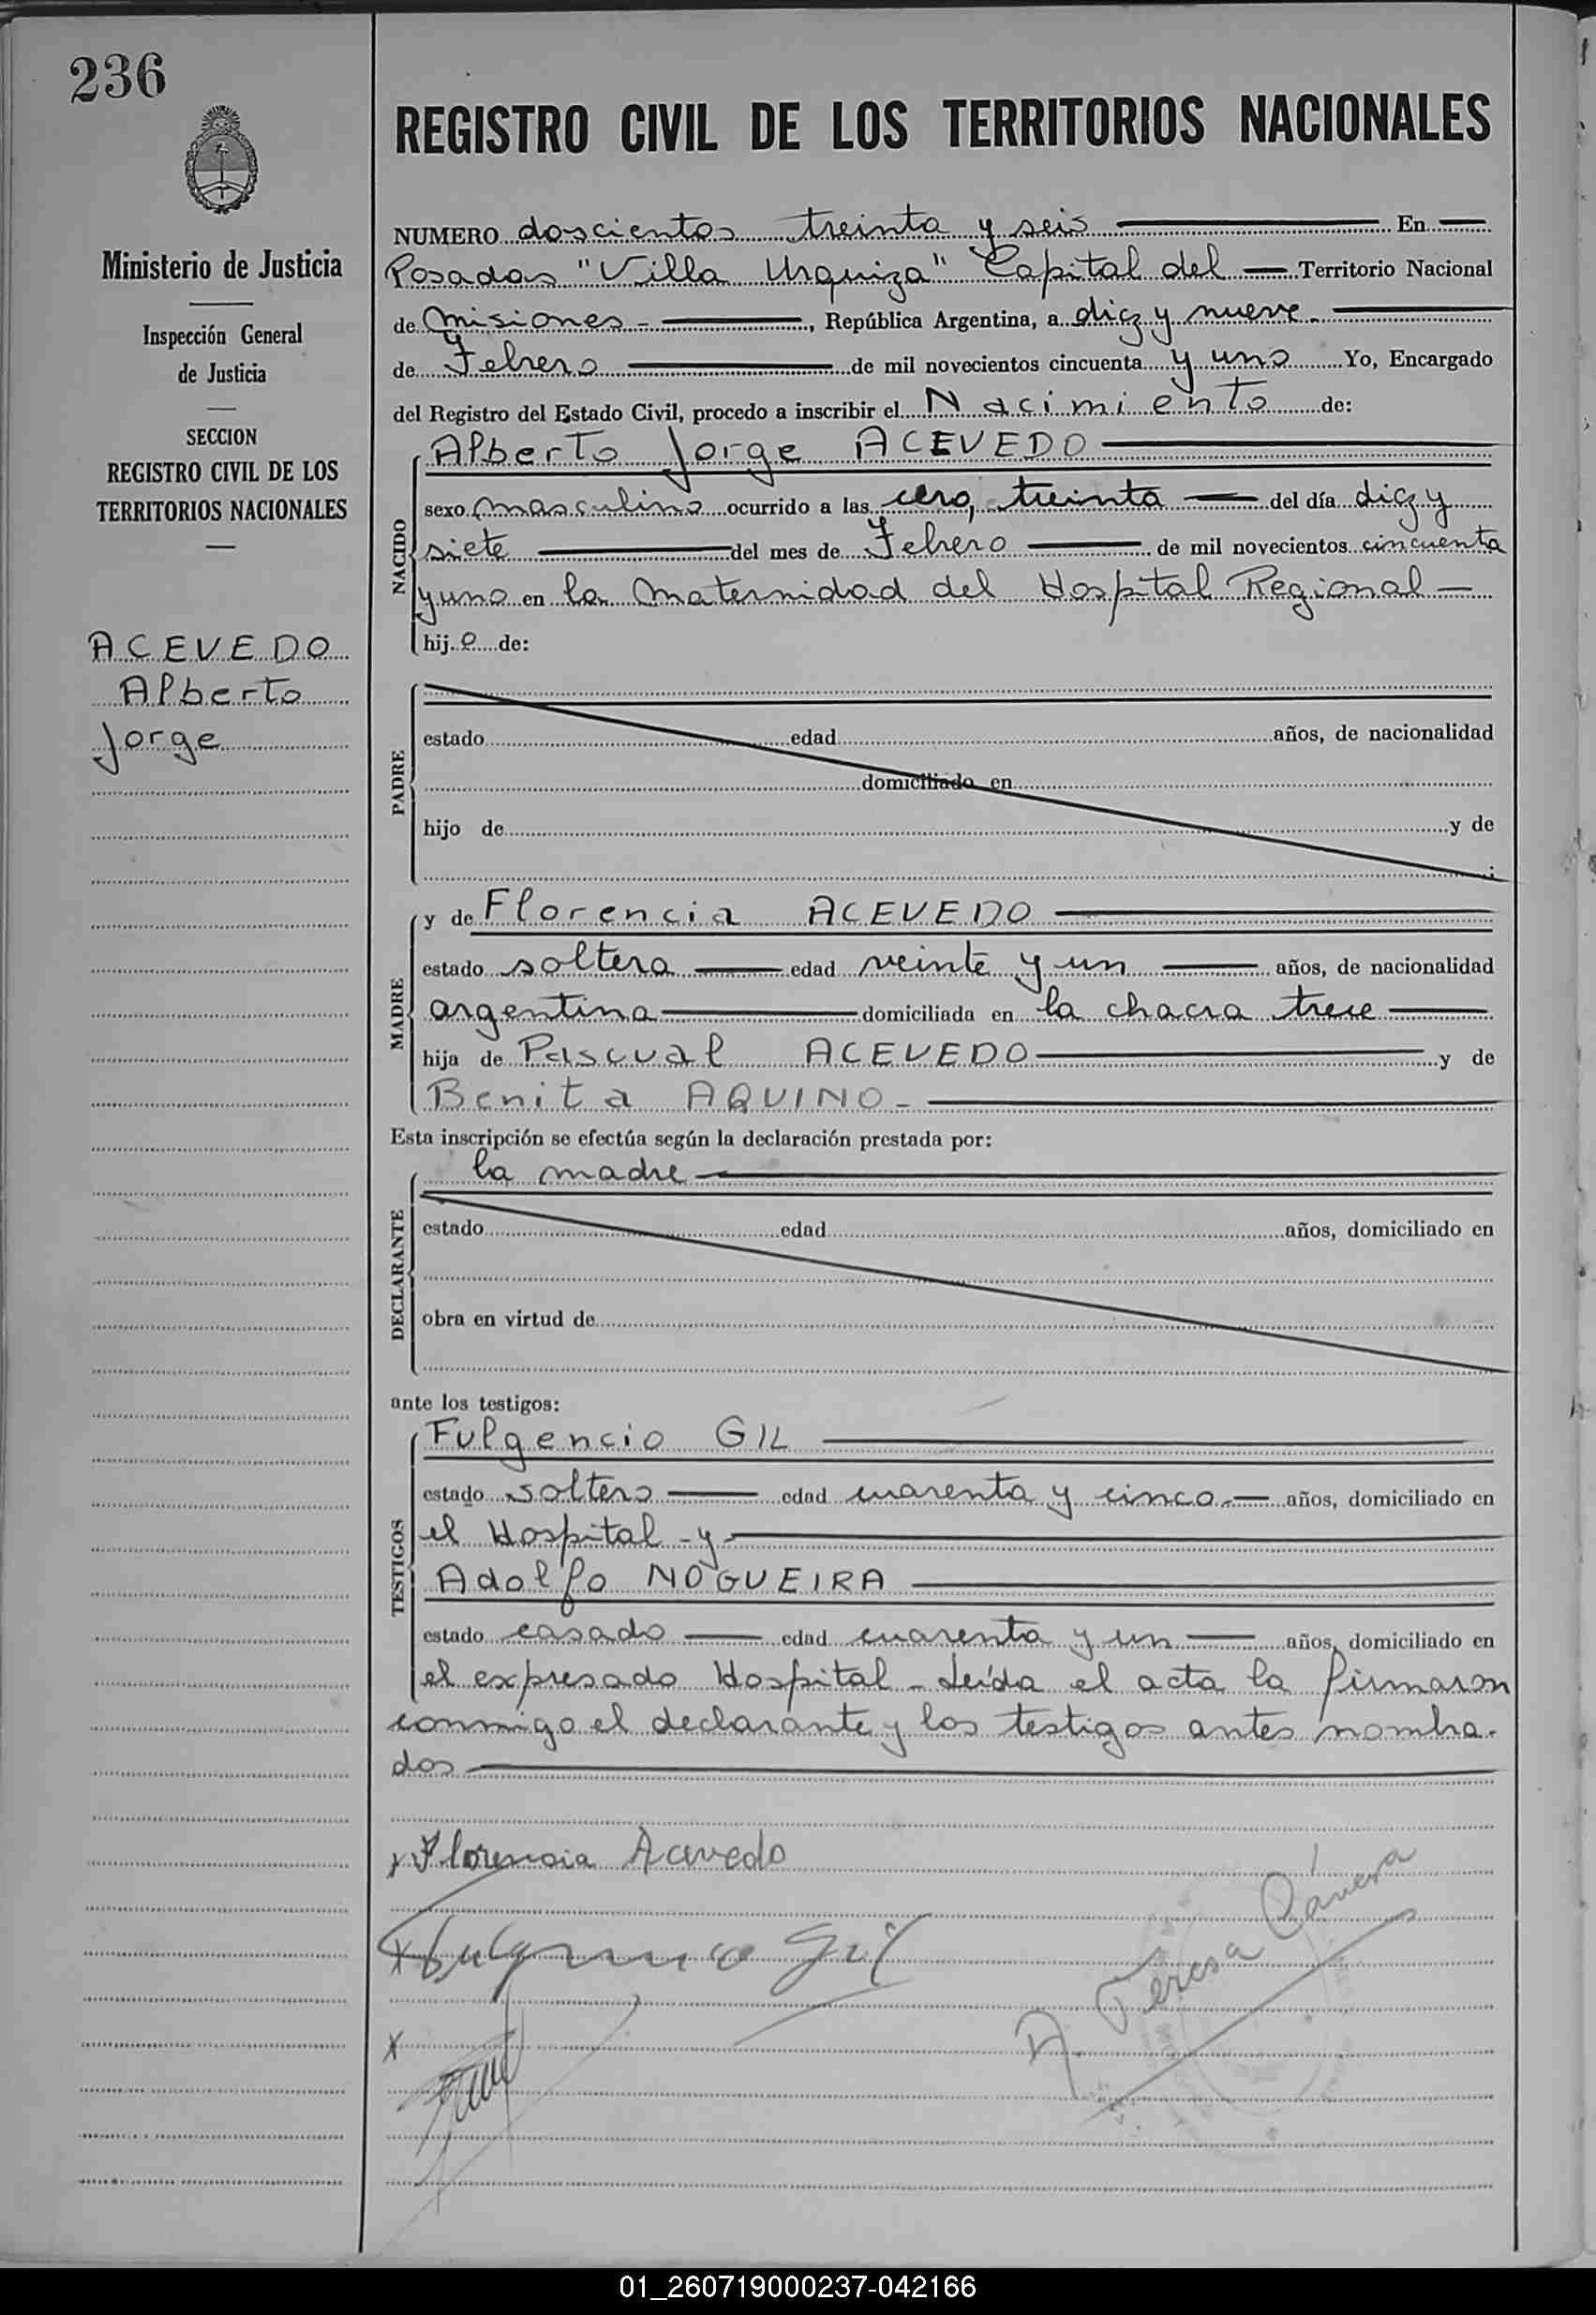 236
REGISTRO CIVIL DE LOS TERRITORIOS NACIONALES
Ministerio de Justicia
Inspección General
de Justicia
SECCION
REGISTRO CIVIL DE LOS
TERRITORIOS NACIONALES
ACEVEDO
Alberto
Jorge
NUMERO doscientos treinta y seis En
Posadas "Villa Urquiza" Capital del Territorio Nacional
de Misiones - , República Argentina, a diez y nueve
de Febrero de mil novecientos cincuenta y uno Yo, Encargado
del Registro del Estado Civil, procedo a inscribir el Nacimiento de:
NACIDO
Alberto Jorge ACEVEDO
sexo masculino ocurrido a las cero, treinta del día diez y
siete del mes de Febrero de mil novecientos cincuenta
y uno en la Maternidad del Hospital Regional
hijo de:
PADRE
estado edad años, de nacionalidad
domiciliado en
hijo de y de
MADRE
y de Florencia ACEVEDO
estado soltera edad veinte y un años, de nacionalidad
argentina domiciliada en la chacra trece
hija de Pascual ACEVEDO y de
Benita AQUINO -
Esta inscripción se efectúa según la declaración prestada por:
DECLARANTE
la madre
estado edad años, domiciliado en
obra en virtud de
ante los testigos:
TESTIGOS
Fulgencio GIL
estado soltero edad cuarenta y cinco años, domiciliado en
el Hospital - y
Adolfo NOGUEIRA
estado casado edad cuarenta y un años, domiciliado en
el expresado Hospital - Leída el acta la firmaron
conmigo el declarante y los testigos antes nombra-
dos
x Florencia Acevedo
x Fulgencio Gil
x
A. Teresa
01_260719000237-042166